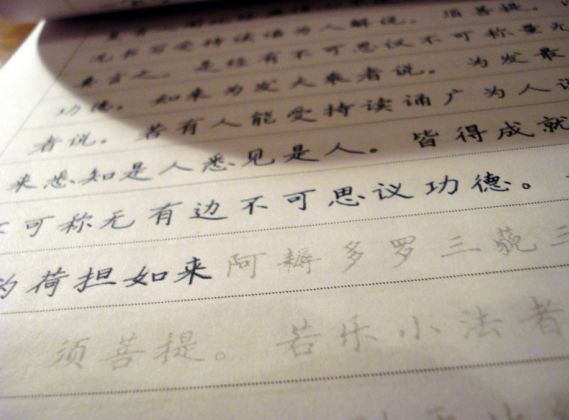 况书写受持读诵为人解说。须菩提。
要言之。是经有不可思议不可称量
功德。如来为发大乘者说。为发最
者说。若有人能受持读诵广为人说
来悉知是人悉见是人。皆得成就
不可称无有边不可思议功德。
为荷担如来阿耨多罗三藐三
须菩提。若乐小法者